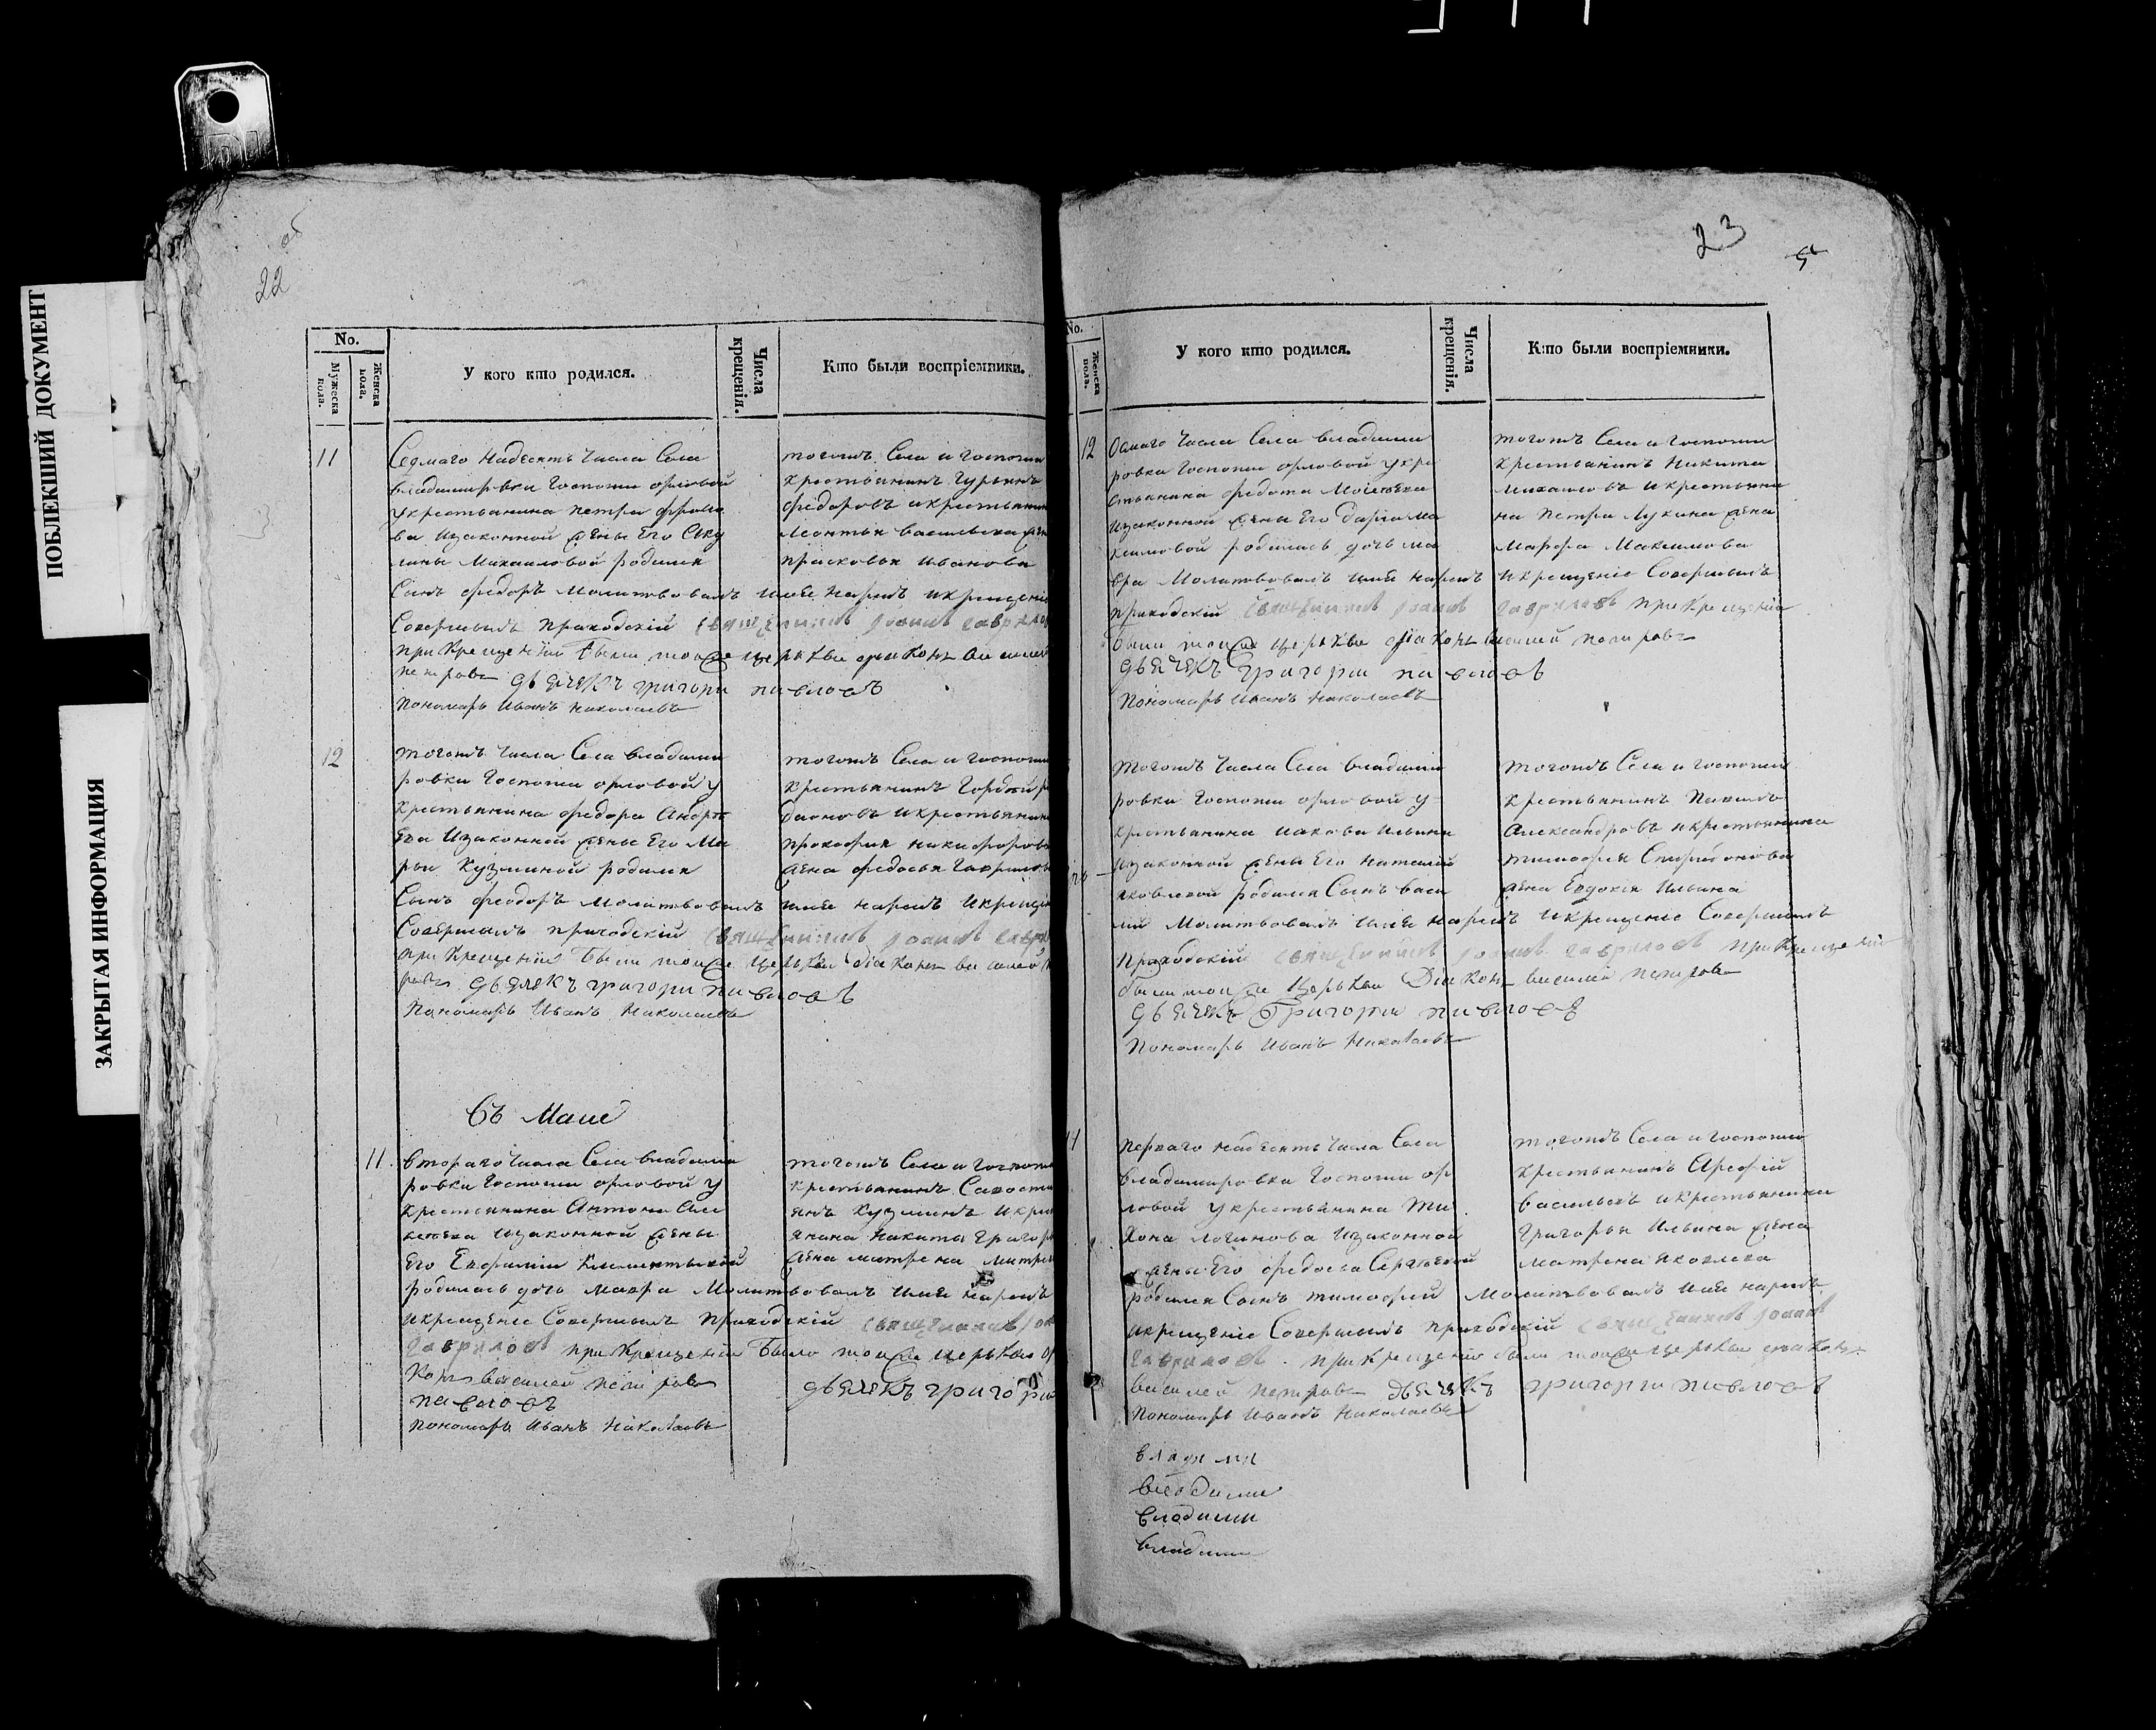 ПОБЛЕКШИЙ ДОКУМЕНТ
ЗАКРЫТАЯ ИНФОРМАЦИЯ
22 об
No.
Мужеска пола.
Женска пола.
У кого кто родился.
Числа крещенія.
Кто были воспріемники.
11
Седмаго надесять числа Села
владимировки Госпожи орловой
у крестьянина петра
ва изаконной жены Его Аку
лины Михаиловой родился
Сынъ федоръ Молитвовалъ имя нарекъ икрещение
Совершилъ приходскій священникъ Иоаннъ гаврило
при крещении были тойже церькви диаконъ василей
петровъ дьячекъ григори павловъ
пономарь Иванъ николаевъ
тогожъ Села и госпожи
крестьянинъ Гурьянъ
федоровъ икрестьянин
Леонтья васильева жен
прасковья иванова
12
тогожъ числа Села владими
ровки Госпожи орловой у
крестьянина федора Андре
ева Изаконной жены Его Ма
рьи Кузминой родился
Сынъ феодоръ молитвовалъ имя нарекъ икреще
Совершилъ приходскій священникъ Иоаннъ гавр
при крещении были тойже церькви діаконъ василей
ровъ дьячекъ григори павловъ
Пономарь Иванъ Николаевъ
тогожъ Села и госпожи
крестьянинъ Гордей
икрестьянин
прокофия никифоров
жена федосья Гаврилов
Въ Маие
11.
втораго числа Села владими
ровки госпожи орловой у
крестьянина Антона
изаконной жены
Его Евфимии Климентьевой
родилась дочь мавра Молитвовалъ имя нарекъ
икрещение Совершилъ приходскій священникъ Иоа
гавриловъ при крещении было тойже церькви
конъ василей петровъ дьячекъ григори
павловъ
пономарь Иванъ Николаевъ
тогожъ Села и госпожи
крестьянинъ Савости
янъ Кузминъ Икрес
янина Никиты Григорь
жена матрена
23
5
No.
Женска пола.
У кого кто родился.
Числа крещенія.
Кто были воспріемники.
12
Осмаго числа Села владими
ровки Госпожи орловой укре
стьянина федота Моисеева
изаконной жены Его дарьи ма
ксимовой родилась дочь ма
вра Молитвовалъ имя нарекъ икрещение Совершилъ
приходскій священникъ Иоаннъ гавриловъ при крещении
были тойже церькви діаконъ василей петровъ
дьячекъ григори павловъ
Пономарь Иванъ Николаевъ
тогожъ Села и госпожи
крестьянинъ Никита
михаиловъ икрестьяни
на петра Лукина жена
марфа Максимова
тогожъ числа Села владими
ровки Госпожи орловой у
крестьянина иакова Ильина
изаконной жены Его наталии
яковлевой родился Сынъ васи
лий Молитвовалъ имя нарекъ икрещение Совершилъ
приходскій священникъ Иоаннъ гавриловъ при крещении
были тойже церькви Діаконъ василей петровъ
дьячекъ Григори павловъ
Пономарь иванъ Николаевъ
тогожъ Села и госпожи
крестьянинъ
Александровъ икрестьянина
тимофея Спиридонова
жена Евдокия Ильина
перваго надесять числа Села
владимировки Госпожи ор
ловой укрестьянина Ти
хона Логинова изаконной
жены Его федосьи Сергеевой
родился Сынъ тимофей Молитвовалъ имя нарекъ
икрещение Совершилъ приходскій священникъ Иоаннъ
гавриловъ. при крещении были тойже церькви диаконъ
василей петровъ дьячекъ григори павловъ
пономарь Иванъ Николаевъ
тогожъ Села и госпожи
крестьянинъ Арефій
васильевъ икрестьянина
Григорья Ильина жена
матрена яковлева
владими
владими
владими
владими